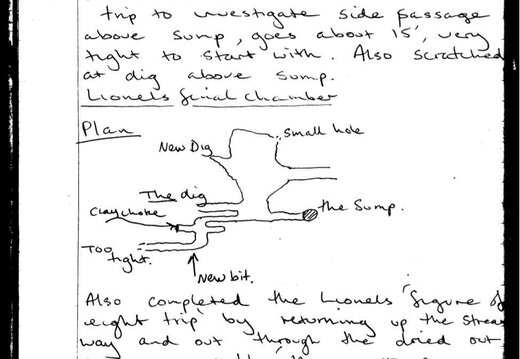 trip to investigate side passage
above sump, goes about 15', very
tight to start with. Also scratched
at dig above sump.
Lionels final chamber
Plan
small hole
New Dig
The dig
Clay choke
the Sump.
Too
tight.
New bit.
Also completed the Lionels 'figure of
eight trip' by returning up the stream
way and out through the dried out